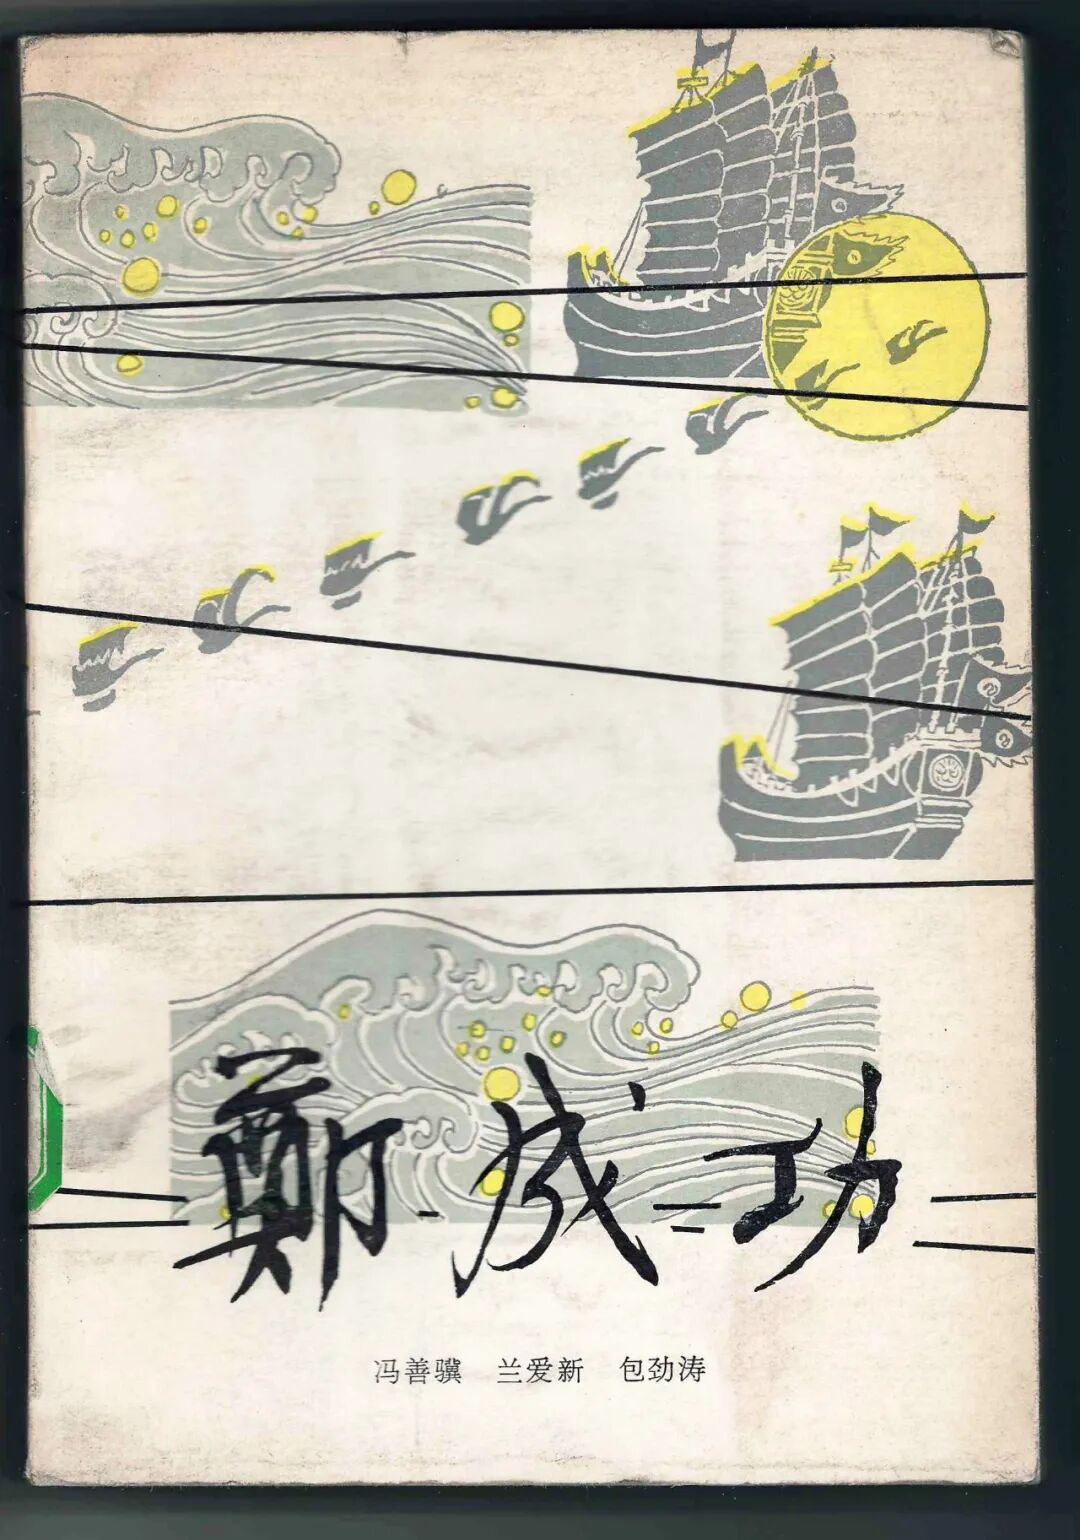 鄭成功
冯善骥 兰爱新 包劲涛